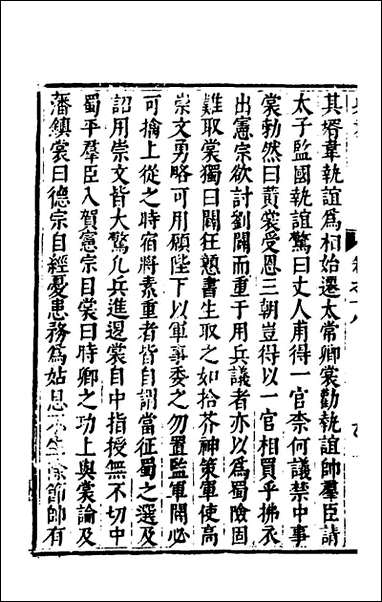 其壻韋執誼為相始遷太常卿裳勸執誼帥羣臣請
太子監國執誼驚曰丈人甫得一官奈何議禁中事
裳勃然曰黃裳受恩三朝豈得以一官相買乎拂衣
出憲宗欲討劉闢而重于用兵議者亦以為蜀險固
難取裳獨曰闢狂戇書生取之如拾芥神策軍使高
崇文勇略可用願陛下以軍事委之勿置監軍闢必
可擒上從之時宿將素重者皆自謂當征蜀之選及
詔用崇文皆大驚凡兵進退裳自中指授無不切中
蜀平羣臣入賀憲宗目裳曰時卿之功上與裳論及
藩鎮裳曰德宗自經憂患務為姑息不生除節帥有